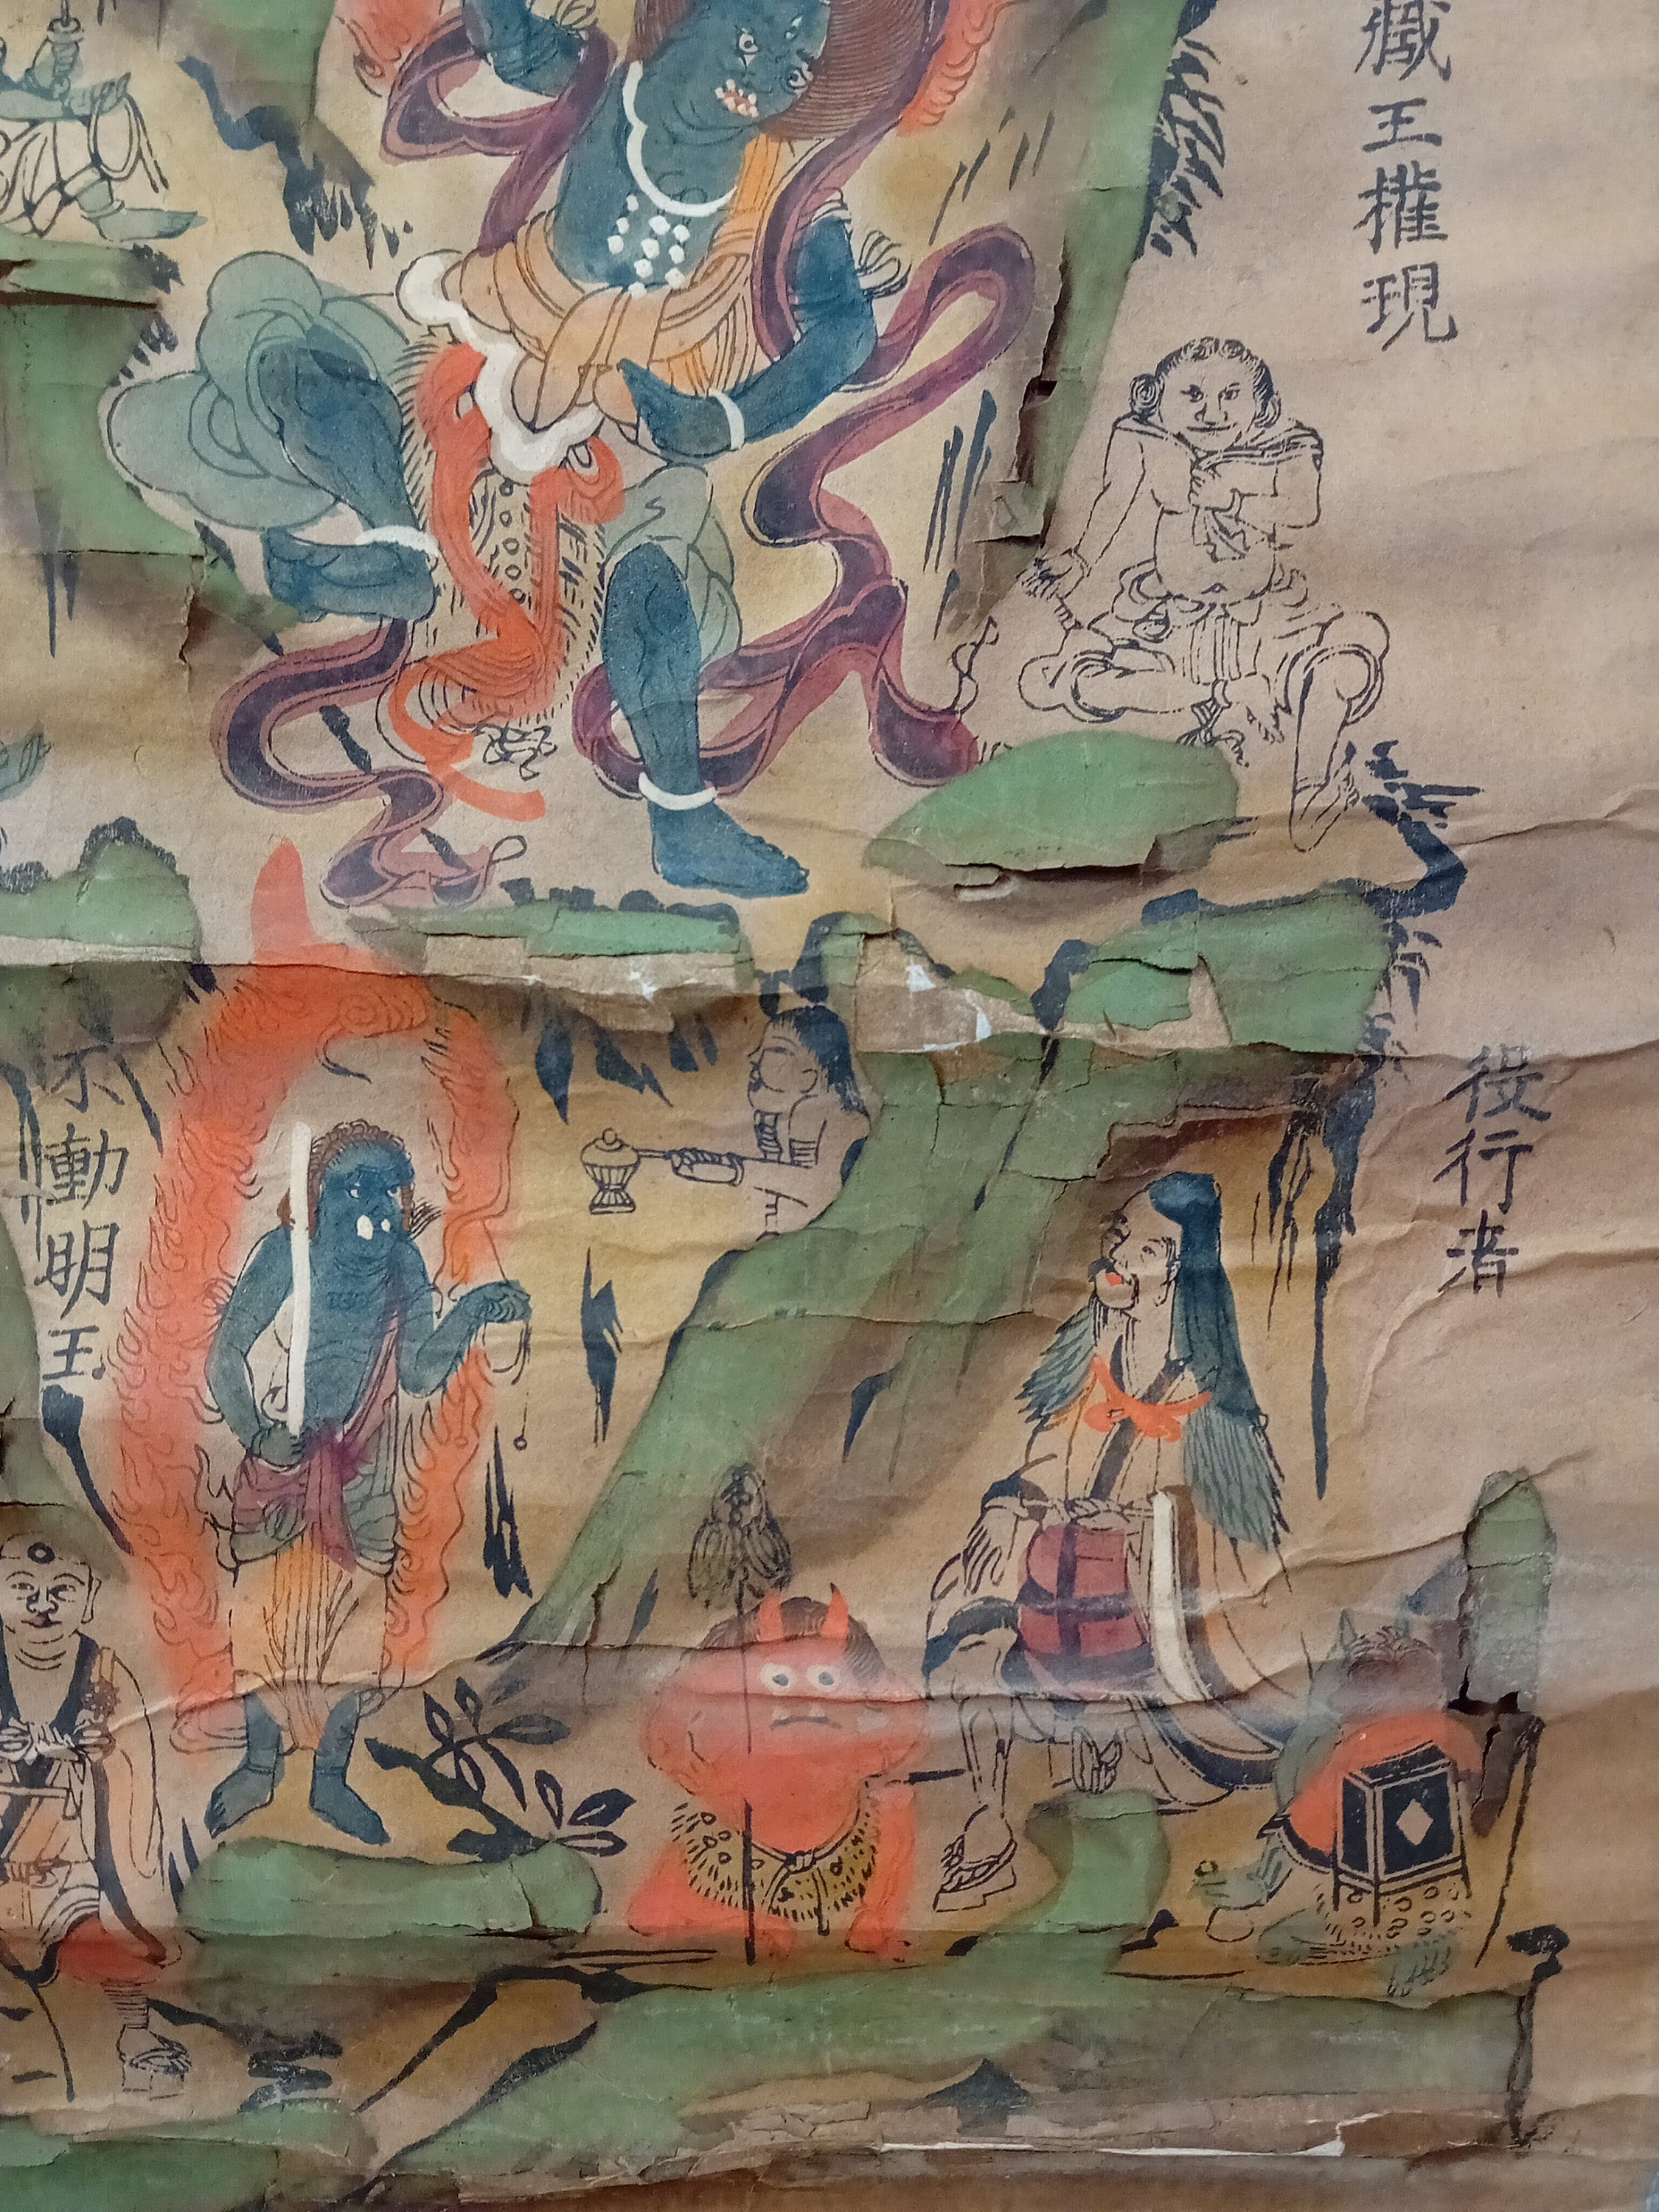 藏王権現
役行者
不動明王